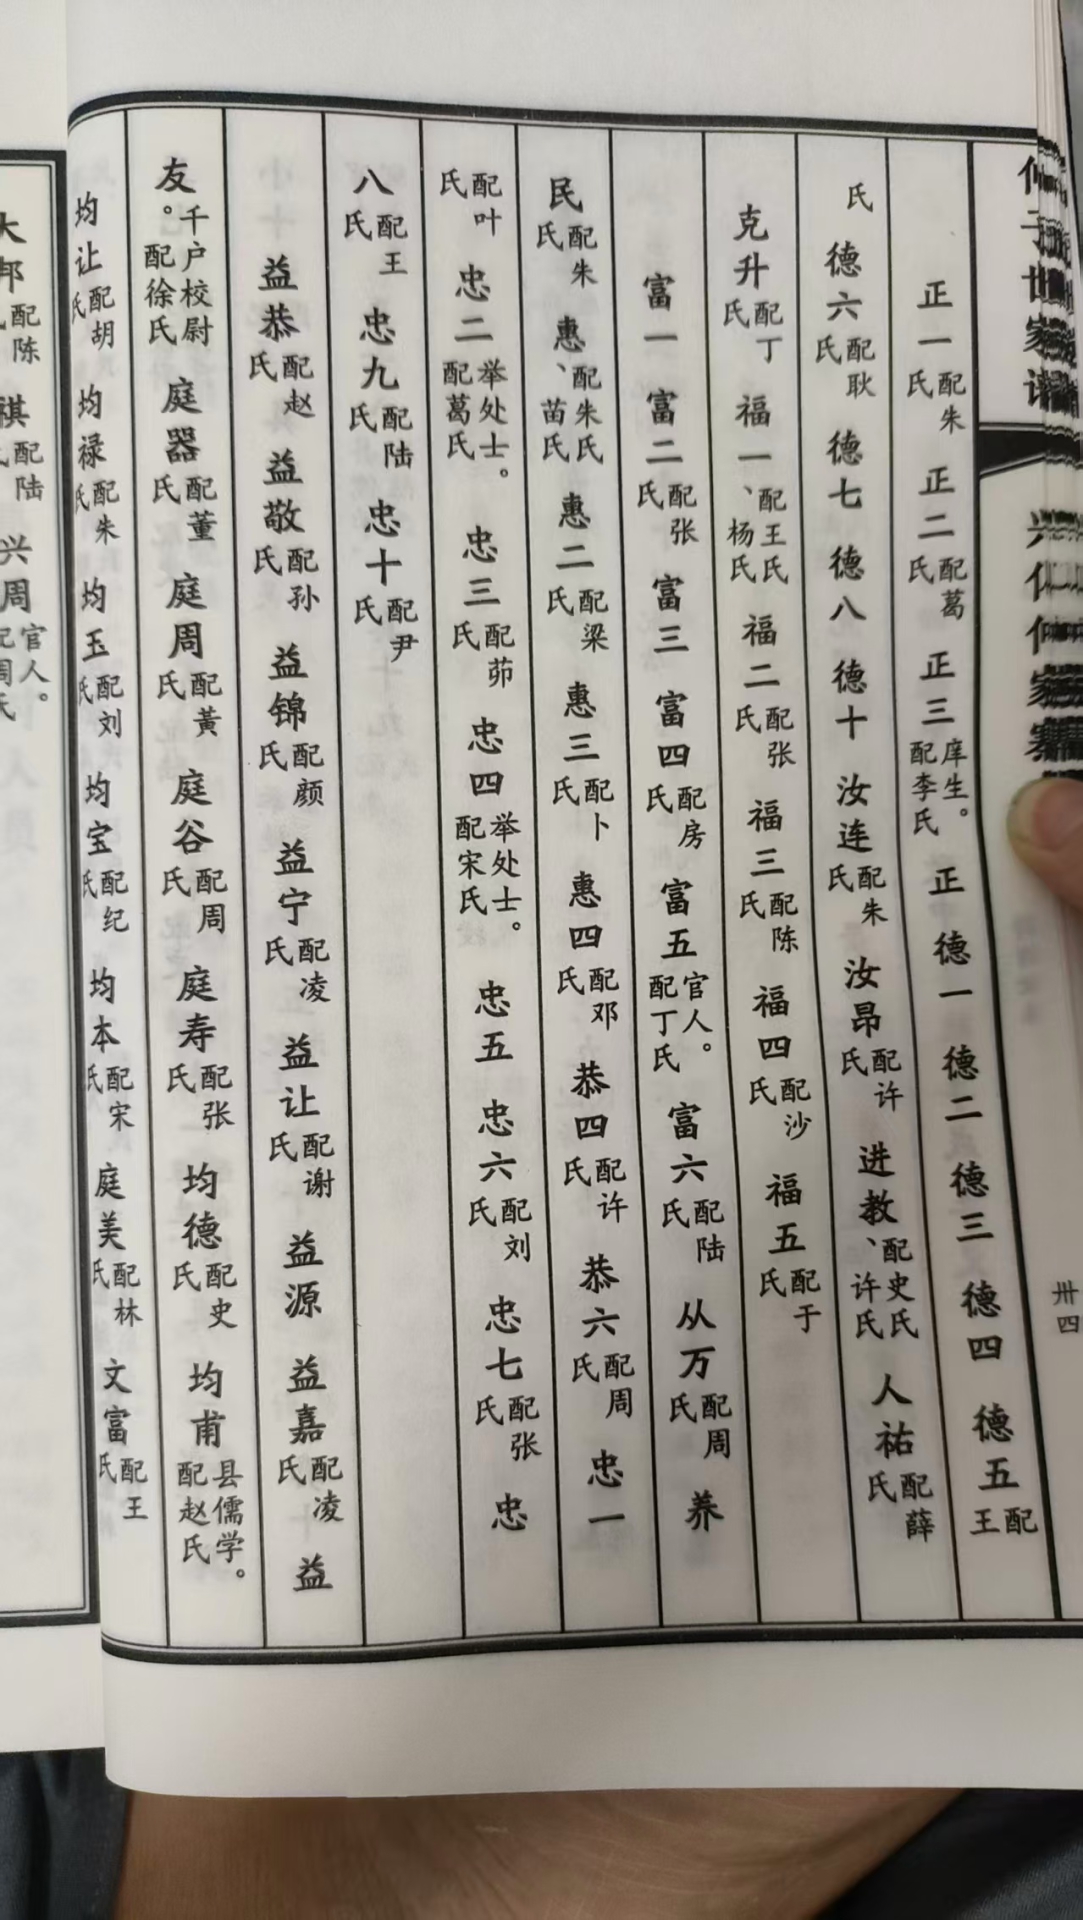 仲子世家谱
兴化仲家寨
卅四
正一配朱氏 正二配葛氏 正三庠生。配李氏 正 德一 德二 德三 德四 德五配王
氏 德六配耿氏 德七 德八 德十 汝连配朱氏 汝昂配许氏 进教、配史氏许氏 人祐配薛氏
克升配丁氏 福一、配王氏杨氏 福二配张氏 福三配陈氏 福四配沙氏 福五配于氏
富一 富二配张氏 富三 富四配房氏 富五官人。配丁氏 富六配陆氏 从万配周氏 养
民配朱氏 惠、配朱氏苗氏 惠二配梁氏 惠三配卜氏 惠四配邓氏 恭四配许氏 恭六配周氏 忠一
配叶氏 忠二举处士。配葛氏 忠三配茆氏 忠四举处士。配宋氏 忠五 忠六配刘氏 忠七配张氏 忠
八配王氏 忠九配陆氏 忠十配尹氏
益恭配赵氏 益敬配孙氏 益锦配颜氏 益宁配凌氏 益让配谢氏 益源 益嘉配凌氏 益
友。千户校尉配徐氏 庭器配董氏 庭周配黄氏 庭谷配周氏 庭寿配张氏 均德配史氏 均甫县儒学。配赵氏
均让配胡氏 均禄配朱氏 均玉配刘氏 均宝配纪氏 均本配宋氏 庭美配林氏 文富配王氏
大邦配陈氏 祺配陆氏 兴周官人。配周氏